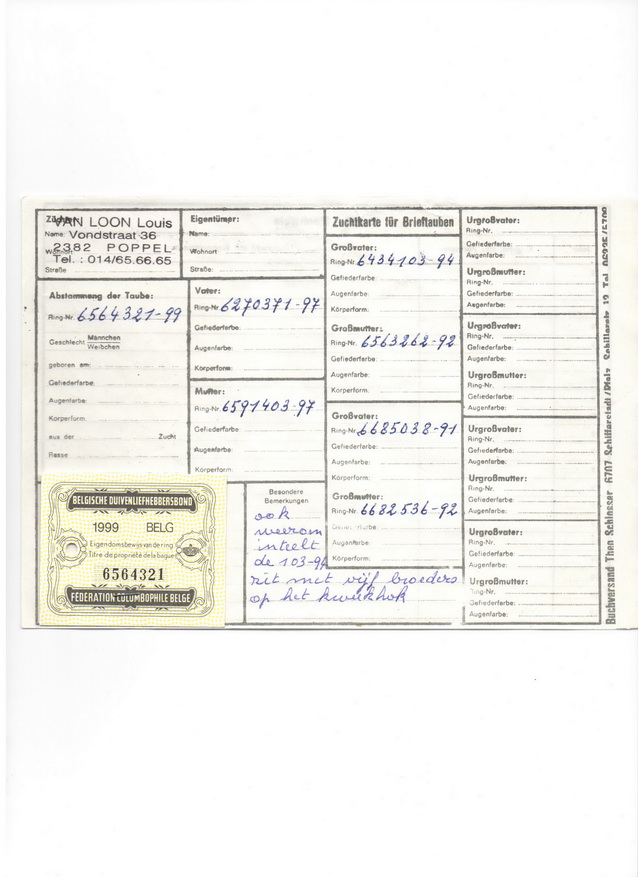 Züchter:
VAN LOON Louis
Name: Vondstraat 36
Wohnort 2382 POPPEL
Tel. : 014/65.66.65
Straße
Eigentümer:
Name:
Wohnort
Straße:
Abstammung der Taube:
Ring-Nr. 6564321-99
Geschlecht Männchen
Weibchen
geboren am:
Gefiederfarbe:
Augenfarbe:
Körperform:
aus der Zucht
Rasse
Vater:
Ring-Nr. 6270371-97
Gefiederfarbe:
Augenfarbe:
Körperform:
Mutter:
Ring-Nr. 6591403-97
Gefiederfarbe:
Augenfarbe:
Körperform:
Zuchtkarte für Brieftauben
Großvater:
Ring-Nr. 6434103-94
Gefiederfarbe:
Augenfarbe:
Körperform:
Großmutter:
Ring-Nr. 6563262-92
Gefiederfarbe:
Augenfarbe:
Körperform:
Großvater:
Ring-Nr. 6685038-91
Gefiederfarbe:
Augenfarbe:
Körperform:
Großmutter:
Ring-Nr. 6682536-92
Gefiederfarbe:
Augenfarbe:
Körperform:
Urgroßvater:
Ring-Nr.
Gefiederfarbe:
Augenfarbe:
Urgroßmutter:
Ring-Nr.
Gefiederfarbe:
Augenfarbe:
Urgroßvater:
Ring-Nr.
Gefiederfarbe:
Augenfarbe:
Urgroßmutter:
Ring-Nr.
Gefiederfarbe:
Augenfarbe:
Urgroßvater:
Ring-Nr.
Gefiederfarbe:
Augenfarbe:
Urgroßmutter:
Ring-Nr.
Gefiederfarbe:
Augenfarbe:
Urgroßvater:
Ring-Nr.
Gefiederfarbe:
Augenfarbe:
Urgroßmutter:
Ring-Nr.
Gefiederfarbe:
Augenfarbe:
BELGISCHE DUIVENLIEFHEBBERSBOND
1999 BELG
Eigendomsbewijs van de ring
Titre de propriété de la bague
6564321
FÉDÉRATION COLOMBOPHILE BELGE
Besondere
Bemerkungen
ook
weerom
inteelt
de 103-94
zit met vijf broeders
op het kweekhok
Buchversand Theo Schlosser 6707 Schifferstadt/Pfalz Schillerstr. 19 Tel.